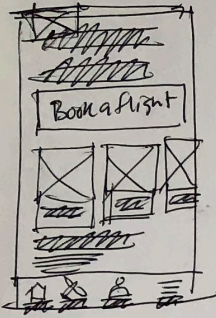 Book a flight